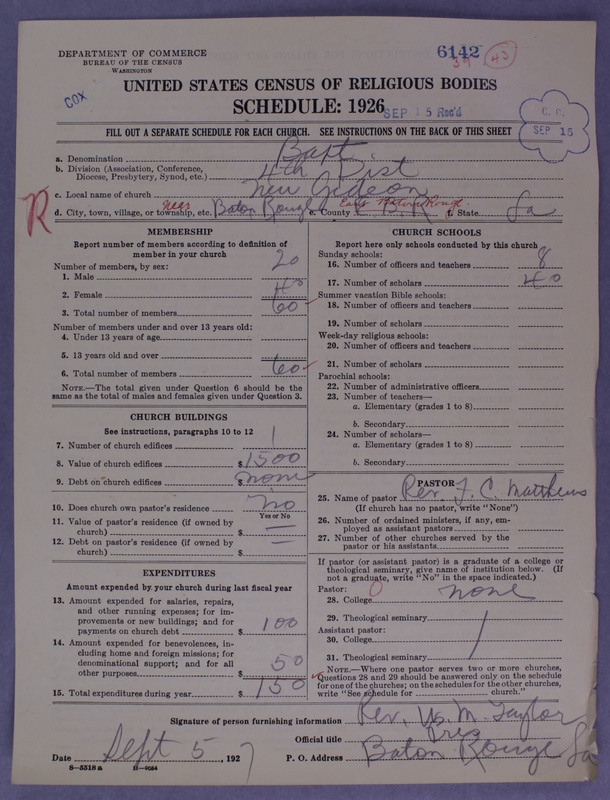 DEPARTMENT OF COMMERCE
BUREAU OF THE CENSUS
WASHINGTON
6142
39
43
COX
UNITED STATES CENSUS OF RELIGIOUS BODIES
SCHEDULE: 1926
SEP 15 Rec'd
C. C.
SEP 15
FILL OUT A SEPARATE SCHEDULE FOR EACH CHURCH. SEE INSTRUCTIONS ON THE BACK OF THIS SHEET
a. Denomination Bapt.
b. Division (Association, Conference, Diocese, Presbytery, Synod, etc.) 4th Dist
c. Local name of church New Gideon
R
d. City, town, village, or township, etc. near Baton Rouge e. County East Baton Rouge E. B. R. f. State La
MEMBERSHIP
Report number of members according to definition of
member in your church
Number of members, by sex:
1. Male 20
2. Female 40
3. Total number of members 60
Number of members under and over 13 years old:
4. Under 13 years of age
5. 13 years old and over
6. Total number of members 60
NOTE.—The total given under Question 6 should be the
same as the total of males and females given under Question 3.
CHURCH BUILDINGS
See instructions, paragraphs 10 to 12
7. Number of church edifices 1
8. Value of church edifices $1500
9. Debt on church edifices $none
10. Does church own pastor's residence no
Yes or No
11. Value of pastor's residence (if owned by
church) $ —
12. Debt on pastor's residence (if owned by
church) $ —
EXPENDITURES
Amount expended by your church during last fiscal year
13. Amount expended for salaries, repairs,
and other running expenses; for im-
provements or new buildings; and for
payments on church debt $ 100
14. Amount expended for benevolences, in-
cluding home and foreign missions; for
denominational support; and for all
other purposes 50
15. Total expenditures during year $150
CHURCH SCHOOLS
Report here only schools conducted by this church
Sunday schools:
16. Number of officers and teachers 8
17. Number of scholars 40
Summer vacation Bible schools:
18. Number of officers and teachers
19. Number of scholars
Week-day religious schools:
20. Number of officers and teachers
21. Number of scholars
Parochial schools:
22. Number of administrative officers
23. Number of teachers—
a. Elementary (grades 1 to 8)
b. Secondary
24. Number of scholars—
a. Elementary (grades 1 to 8)
b. Secondary
PASTOR
25. Name of pastor Rev. F. C. Matthews
(If church has no pastor, write "None")
26. Number of ordained ministers, if any, em-
ployed as assistant pastors
27. Number of other churches served by the
pastor or his assistants
If pastor (or assistant pastor) is a graduate of a college or
theological seminary, give name of institution below. (If
not a graduate, write "No" in the space indicated.)
Pastor: 0
28. College none
29. Theological seminary
Assistant pastor:
30. College
31. Theological seminary
NOTE.—Where one pastor serves two or more churches,
Questions 28 and 29 should be answered only on the schedule
for one of the churches; on the schedules for the other churches,
write "See schedule for church."
Signature of person furnishing information Rev. W. M. Taylor
Official title Pres
Date Sept 5, 1927 P. O. Address Baton Rouge La
8—5518 a 11—9054